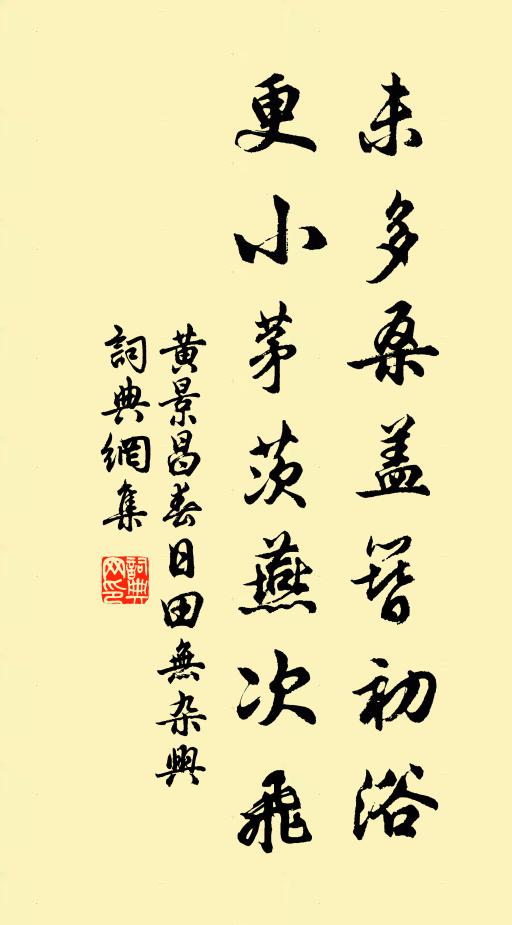 未多桑盖簪初浴
更小茅茨燕次飛
黄景昌春日田無杂興
詞典網集
詞典网印